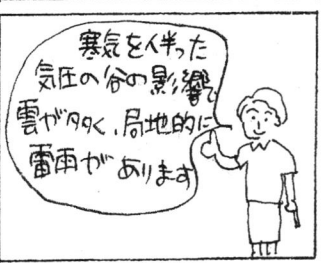 寒気を伴った
気圧の谷の影響で
雲が多く、局地的に
雷雨があります